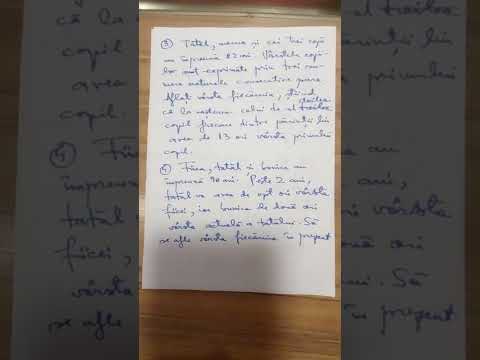 ③ Tatăl, mama și cei trei copii
au împreună 82 ani. Vârstele copii-
lor sunt exprimate prin trei nu-
mere naturale consecutive pare
Aflați vârsta fiecăruia, știind
că la nașterea celui de al doilea
copil fiecare dintre părinții lui
avea de 13 ori vârsta primului
copil.
④ Fiica, tatăl și bunica au
împreună 90 ani. Peste 2 ani,
tatăl va avea de opt ori vârsta
fiicei, iar bunica de două ori
vârsta actuală a tatălui. Să
se afle vârsta fiecăruia în prezent